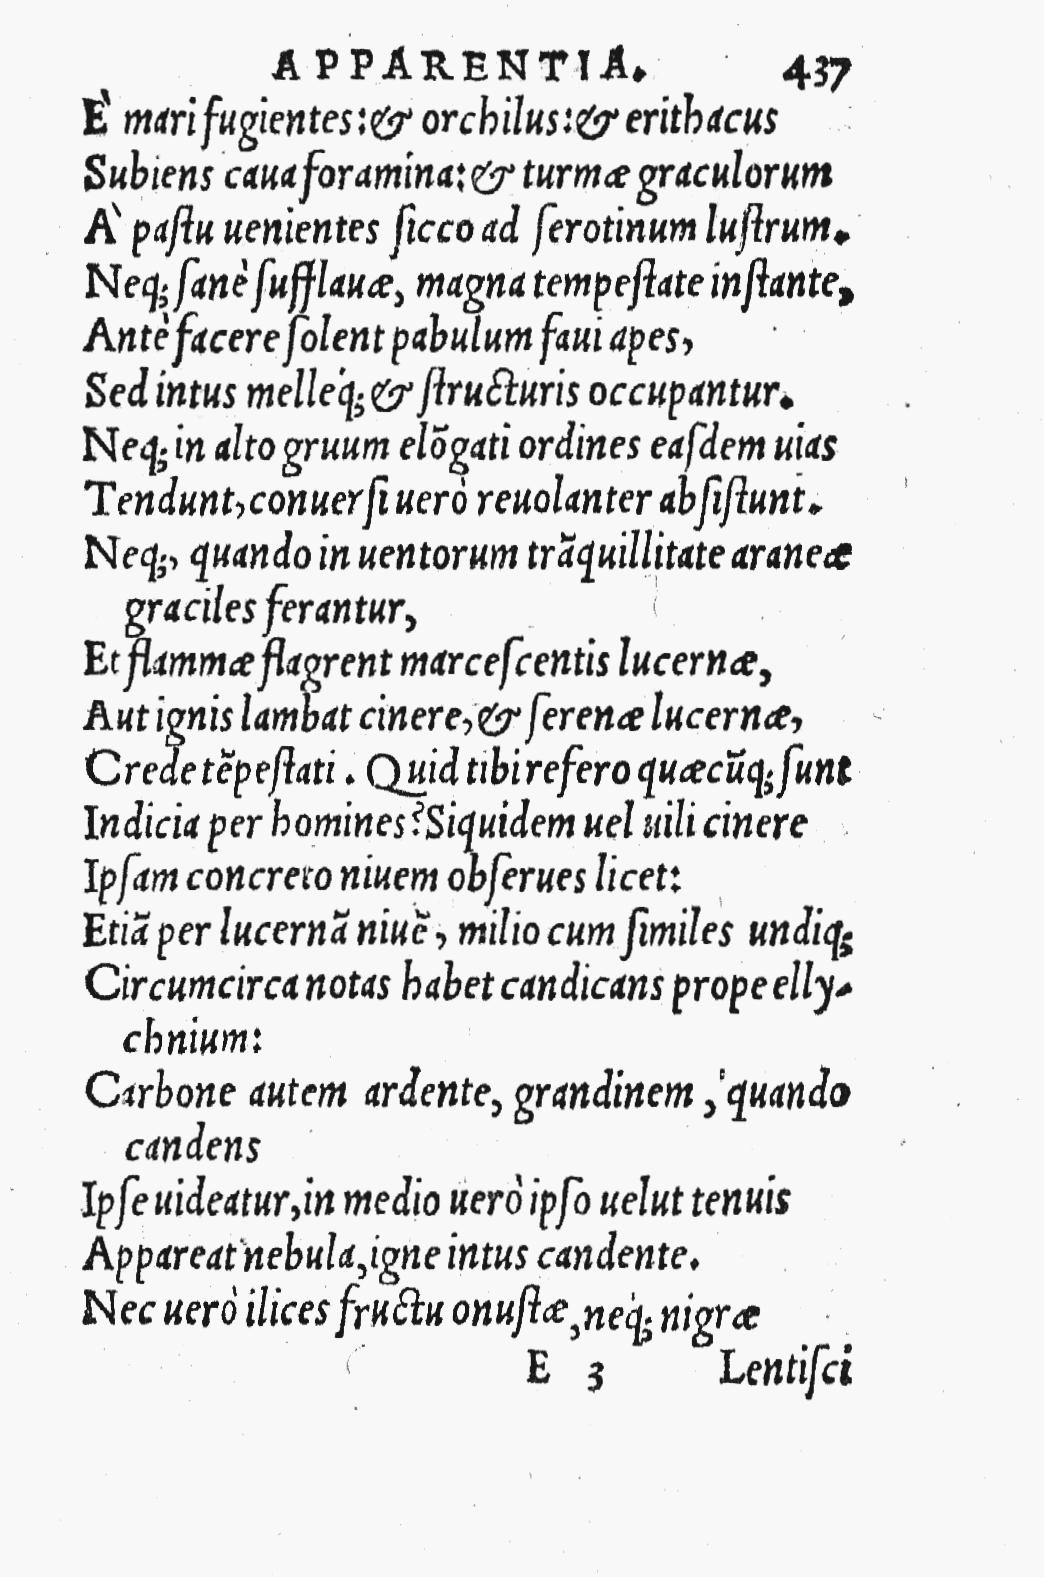 APPARENTIA. 437
È mari fugientes: & orchilus: & erithacus
Subiens caua foramina: & turmæ graculorum
À paſtu uenientes ſicco ad ſerotinum luſtrum.
Neq; ſanè ſufflauæ, magna tempeſtate inſtante,
Antè facere ſolent pabulum faui apes,
Sed intus melleq́; & ſtructuris occupantur.
Neq; in alto gruum elõgati ordines eaſdem uias
Tendunt, conuerſi uerò reuolanter abſiſtunt.
Neq;, quando in uentorum trãquillitate araneæ
graciles ferantur,
Et flammæ flagrent marceſcentis lucernæ,
Aut ignis lambat cinere, & ſerenæ lucernæ,
Crede tẽpeſtati. Quid tibi refero quæcũq; ſunt
Indicia per homines? Siquidem uel uili cinere
Ipſam concreto niuem obſerues licet:
Etiã per lucernã niuẽ, milio cum ſimiles undiq;
Circumcirca notas habet candicans prope elly-
chnium:
Carbone autem ardente, grandinem, quando
candens
Ipſe uideatur, in medio uerò ipſo uelut tenuis
Appareat nebula, igne intus candente.
Nec uerò ilices fructu onuſtæ, neq́; nigræ
E 3 Lentiſci